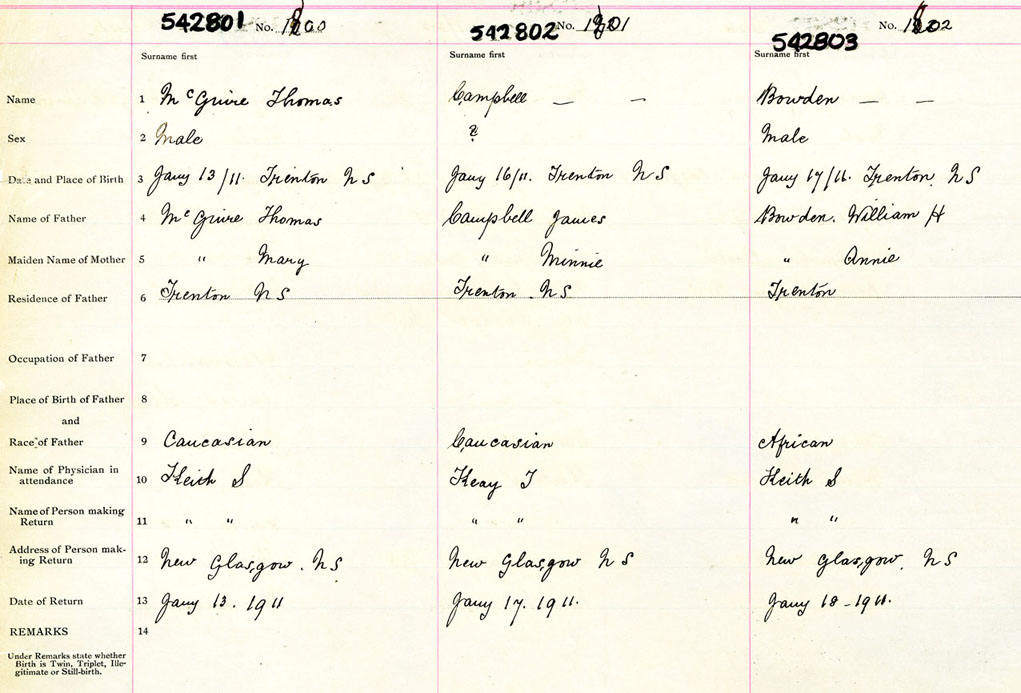 542801 No. 1800 542802 No. 1801 542803 No. 1802
Surname first Surname first Surname first
Name 1 McGuire Thomas Campbell — — Bowden — —
Sex 2 Male ? Male
Date and Place of Birth 3 Jany 13/11. Trenton NS Jany 16/11. Trenton NS Jany 17/11. Trenton, NS
Name of Father 4 McGuire Thomas Campbell James Bowden. William H
Maiden Name of Mother 5 " Mary " Minnie " Annie
Residence of Father 6 Trenton NS Trenton. NS Trenton
Occupation of Father 7
Place of Birth of Father 8
and
Race of Father 9 Caucasian Caucasian African
Name of Physician in
attendance 10 Keith S Keay T Keith S
Name of Person making
Return 11 " " " " " "
Address of Person mak-
ing Return 12 New Glasgow. NS New Glasgow NS New Glasgow. NS
Date of Return 13 Jany 13. 1911 Jany 17. 1911. Jany 18-1911.
REMARKS 14
Under Remarks state whether
Birth is Twin, Triplet, Ille-
gitimate or Still-birth.